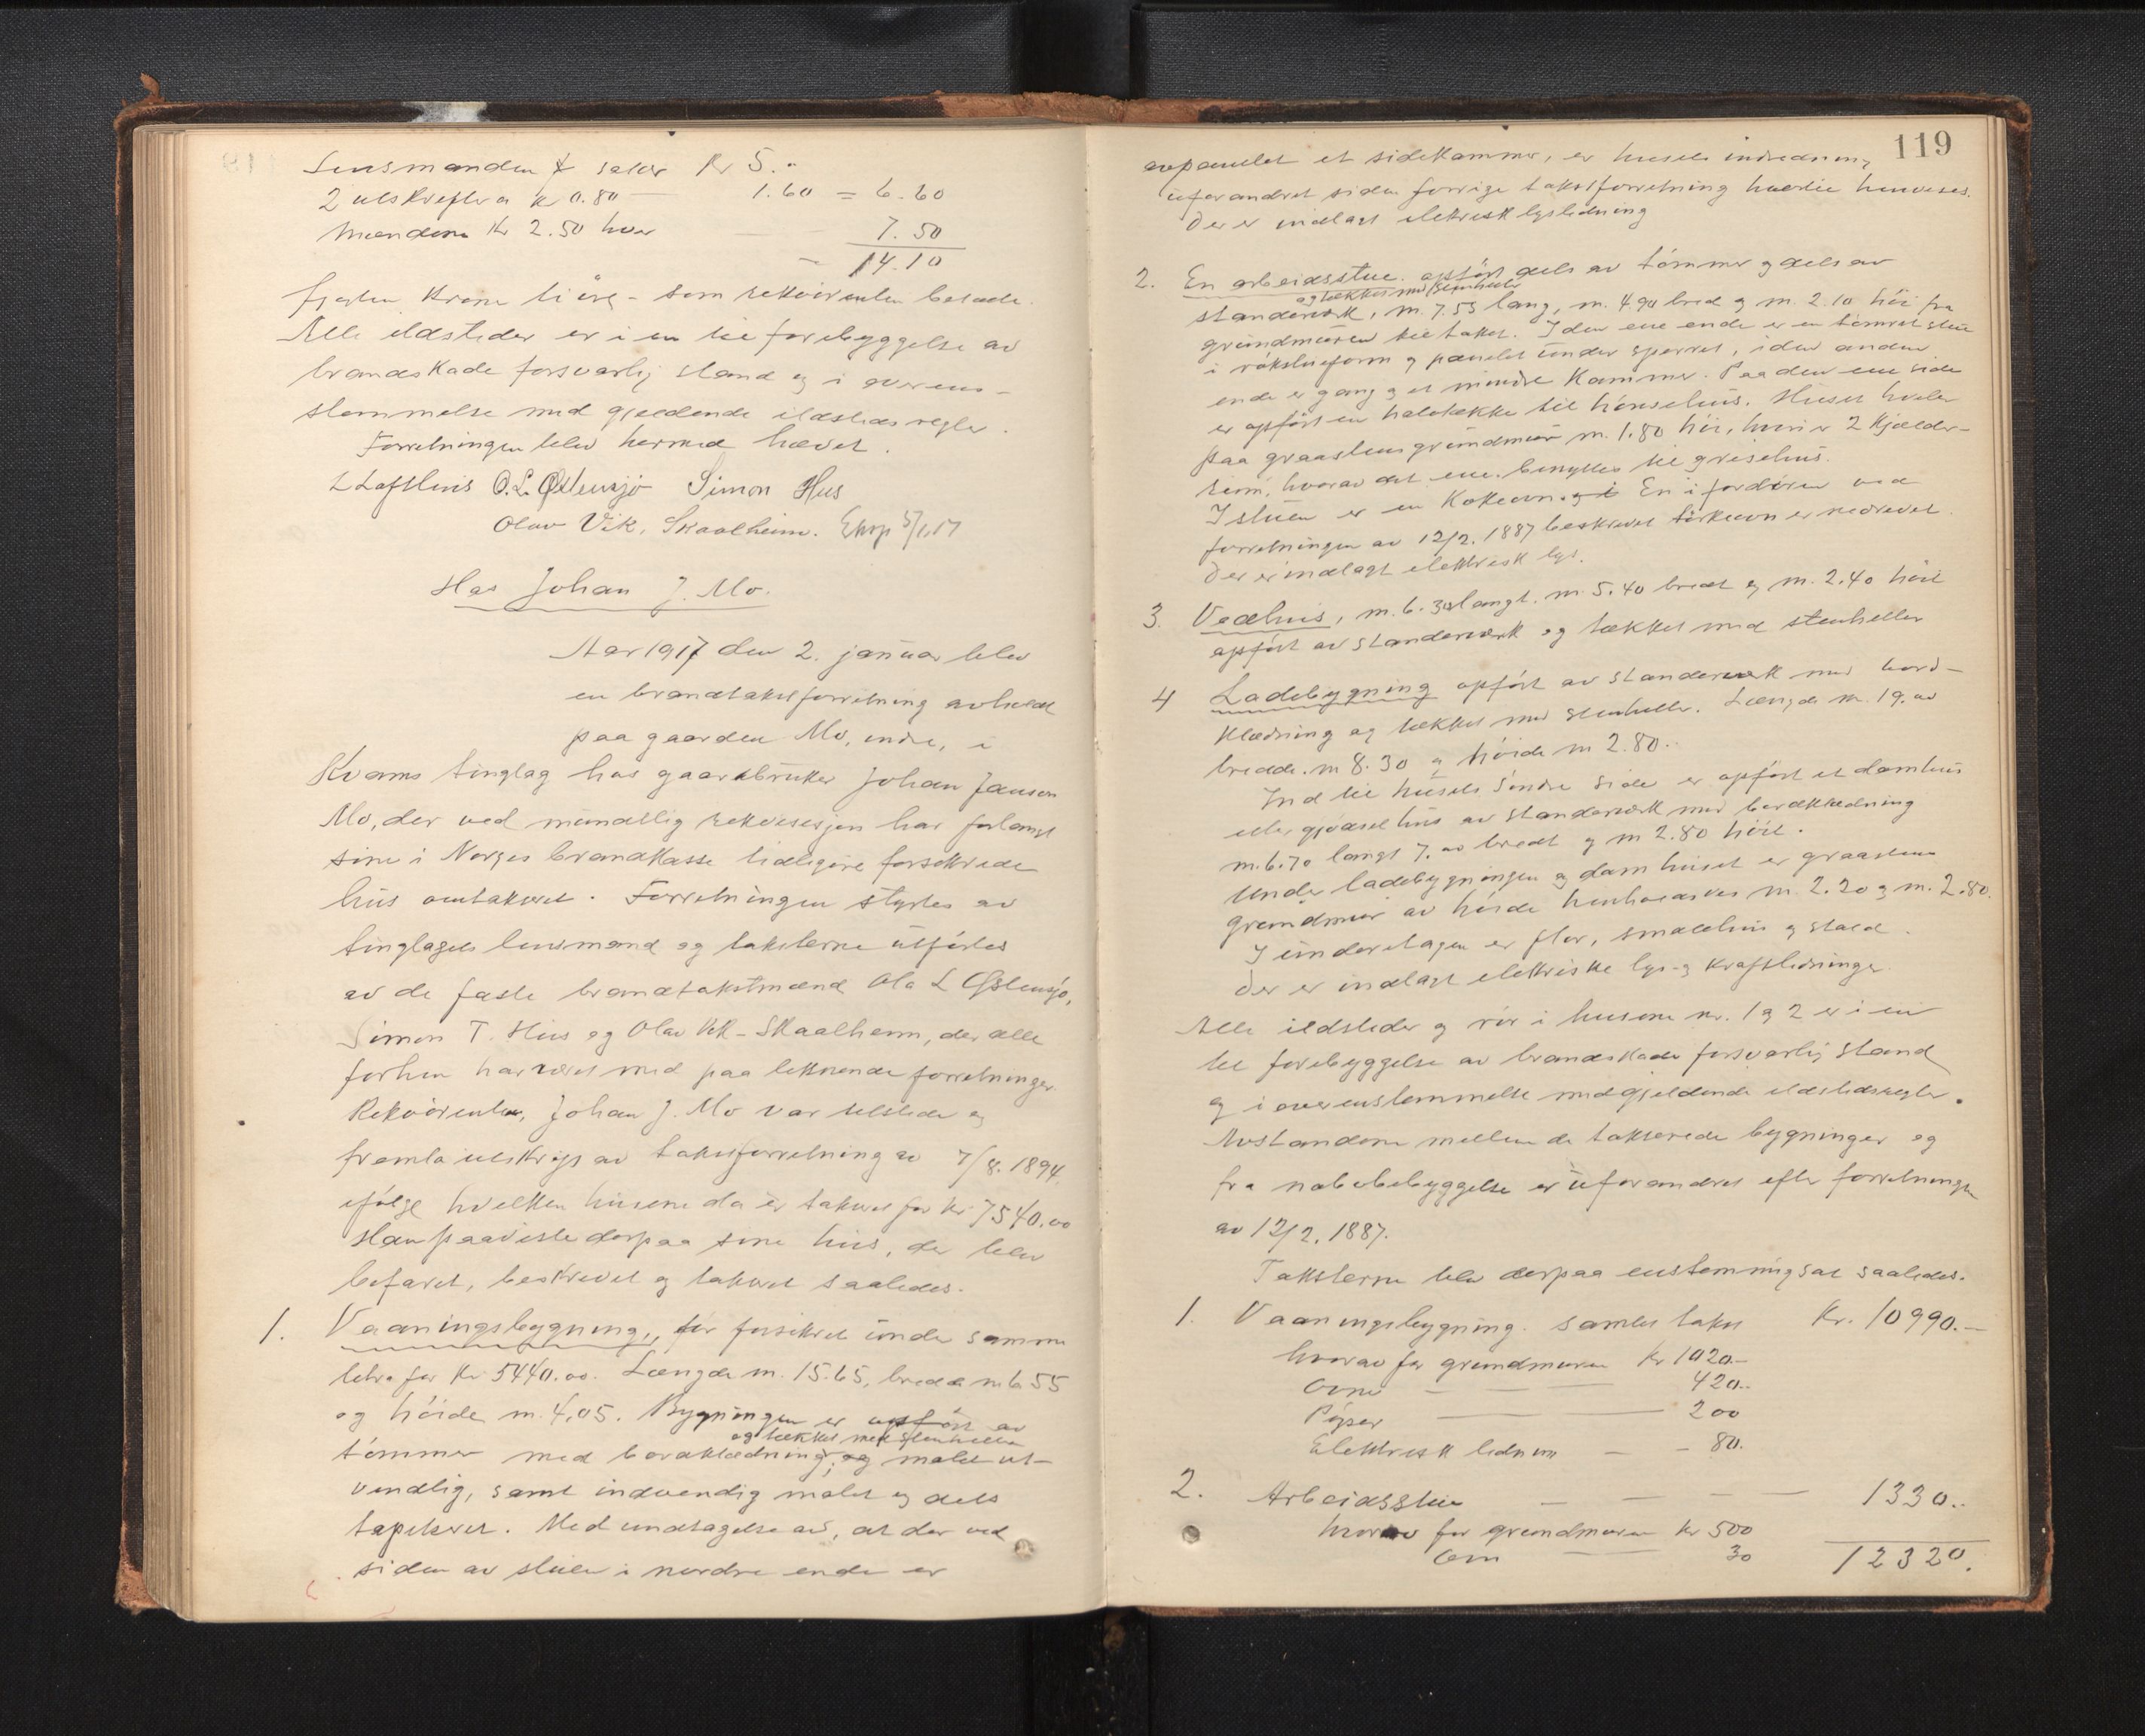 Lensmanden salær Kr 5.-
2 utskrifter a kr 0.80 — 1.60 = 6.60
Mændene Kr 2.50 hver — 7.50
14.10
fjorten Krone ti øre - som rekvirenten betalte.
Alle ildsteder er i en til forebyggelse av
brandskade forsvarlig stand og i overens-
stemmelse med gjeldende ildstedsregler.
Forretningen blev hermed hævet.
L Lofthus O. L. Østensjø Simon Hus
Olav Vik, Skaalheim. Eksp 5/1.17
Hos Johan J. Mo.
Aar 1917 den 2. januar blev
en brandtakstforretning avholdt
paa gaarden Mo, indre, i
Kvams tinglag hos gaardbruker Johan Janson
Mo, der ved mundtlig rekvisisjon har forlangt
sine i Norges brandkasse tidligere forsikrede
hus omtaksert. Forretningen styrtes av
tinglagets lensmand og taksterne utførtes
av de faste brandtakstmænd Ola L Østensjø,
Simon T. Hus og Olav Vik-Skaalheim, der alle
forhen har været med paa liknende forretninger.
Rekvirenten, Johan J. Mo var tilstede og
fremla utskrift av takstforretning av 7/8. 1894
ifølge hvilken husene da er taksert for kr 7540.00
Han paaviste derpaa sine hus, der blev
befaret, beskrevet og taksert saaledes.
1. Vaaningsbygning, før forsikret under samme
litra for Kr 5440.00. Længde m. 15.65, bredde m 6 55
og høide m. 4,05. Bygningen er opført av
og tækket med stenheller
tømmer med bordklædning, og malet ut-
vendig, samt indvendig malet og dels
tapetsert. Med undtagelse av, at der ved
siden av stuen i nordre ende er
119
avpanelet et sidekammer, er husets indredning
uforandret siden forrige takstforretning hvortil henvises.
Der er indlagt elektrisk lysledning
2. En arbeidsstue opført dels av tømmer og dels av
og tækket med stenheller
standerværk, m. 7.55 lang, m. 4.90 bred og m. 2.10 høi fra
grundmuren til taket. I den ene ende er en tømret stue
i røkstueform og panelet under sperret, i den anden
ende er gang og et mindre kammer. Paa den ene side
er opført en halvtække til hønsehus. Huset hviler
paa graastens grundmur m. 1.80 høi, hvori er 2 kjælder-
rom, hvorav det ene benyttes til grisehus.
I stuen er en kokeovn. En i fordøren ved
forretningen av 12/2. 1887 beskrevet tørkeovn er nedrevet.
Der er indlagt elektrisk lys.
3. Vedhus, m. 6.30 langt. m. 5.40 bredt og m. 2.40 høit
opført av standerværk og tækket med stenheller
4 Ladebygning opført av standerværk med bord-
klædning og tækket med stenheller. Længde m. 19.00
bredde. m 8.30 og høide m 2.80.
Ind til husets søndre side er opført et damhus
eller gjødselhus av standerværk med bordklædning
m. 6.70 langt 7.00 bredt og m 2.80 høit.
Under ladebygningen og damhuset er graastens
grundmur av høide henholdsvis m. 2.20 og m. 2.80.
I underetagen er flor, smalehus og stald.
Der er indlagt elektriske lys- og kraftledninger.
Alle ildsteder og rør i husene nr. 1 og 2 er i en
til forebyggelse av brandskade forsvarlig stand
og i overenstemmelse med gjeldende ildstedsregler.
Avstandene mellem de takserede bygninger og
fra nabobebyggelse er uforandret efter forretningen
av 12/2. 1887.
Taksterne blev derpaa enstemmig sat saaledes.
1. Vaaningsbygning. samlet takst Kr. 10990.—
hvorav for grundmuren Kr 1020.-
Ovne — — 420.-
Piper — 200
Elektrisk ledning — - 80.
2. Arbeidsstue — — — 1330.-
hvorav for grundmuren kr 500
Ovn — 30
12320.